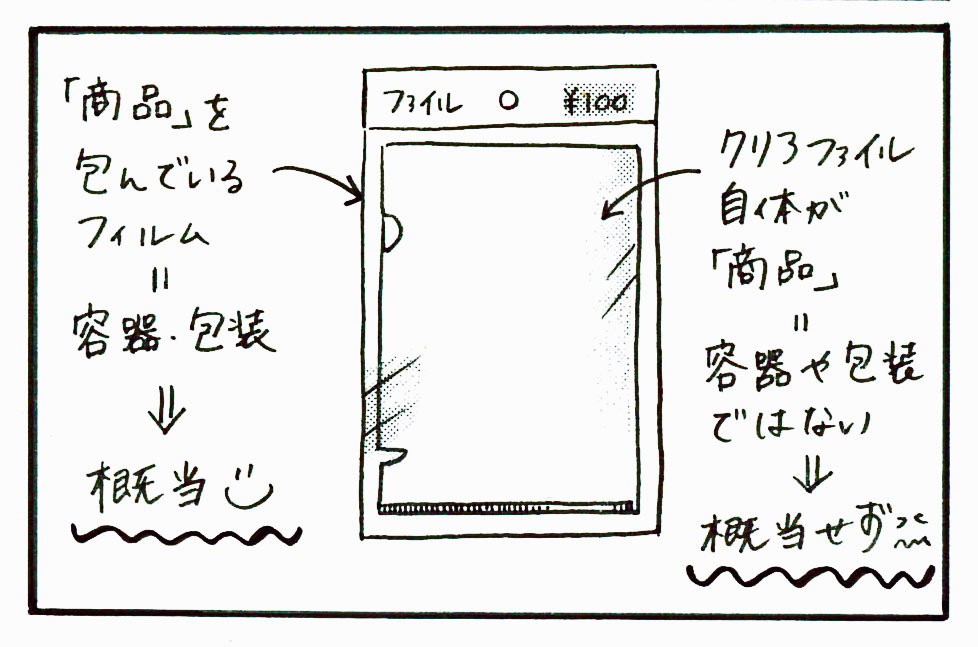 「商品」を
包んでいる
フィルム
=
容器・包装
⇓
概当
ファイル ○ ¥100
クリアファイル
自体が
「商品」
=
容器や包装
ではない
⇓
概当せず